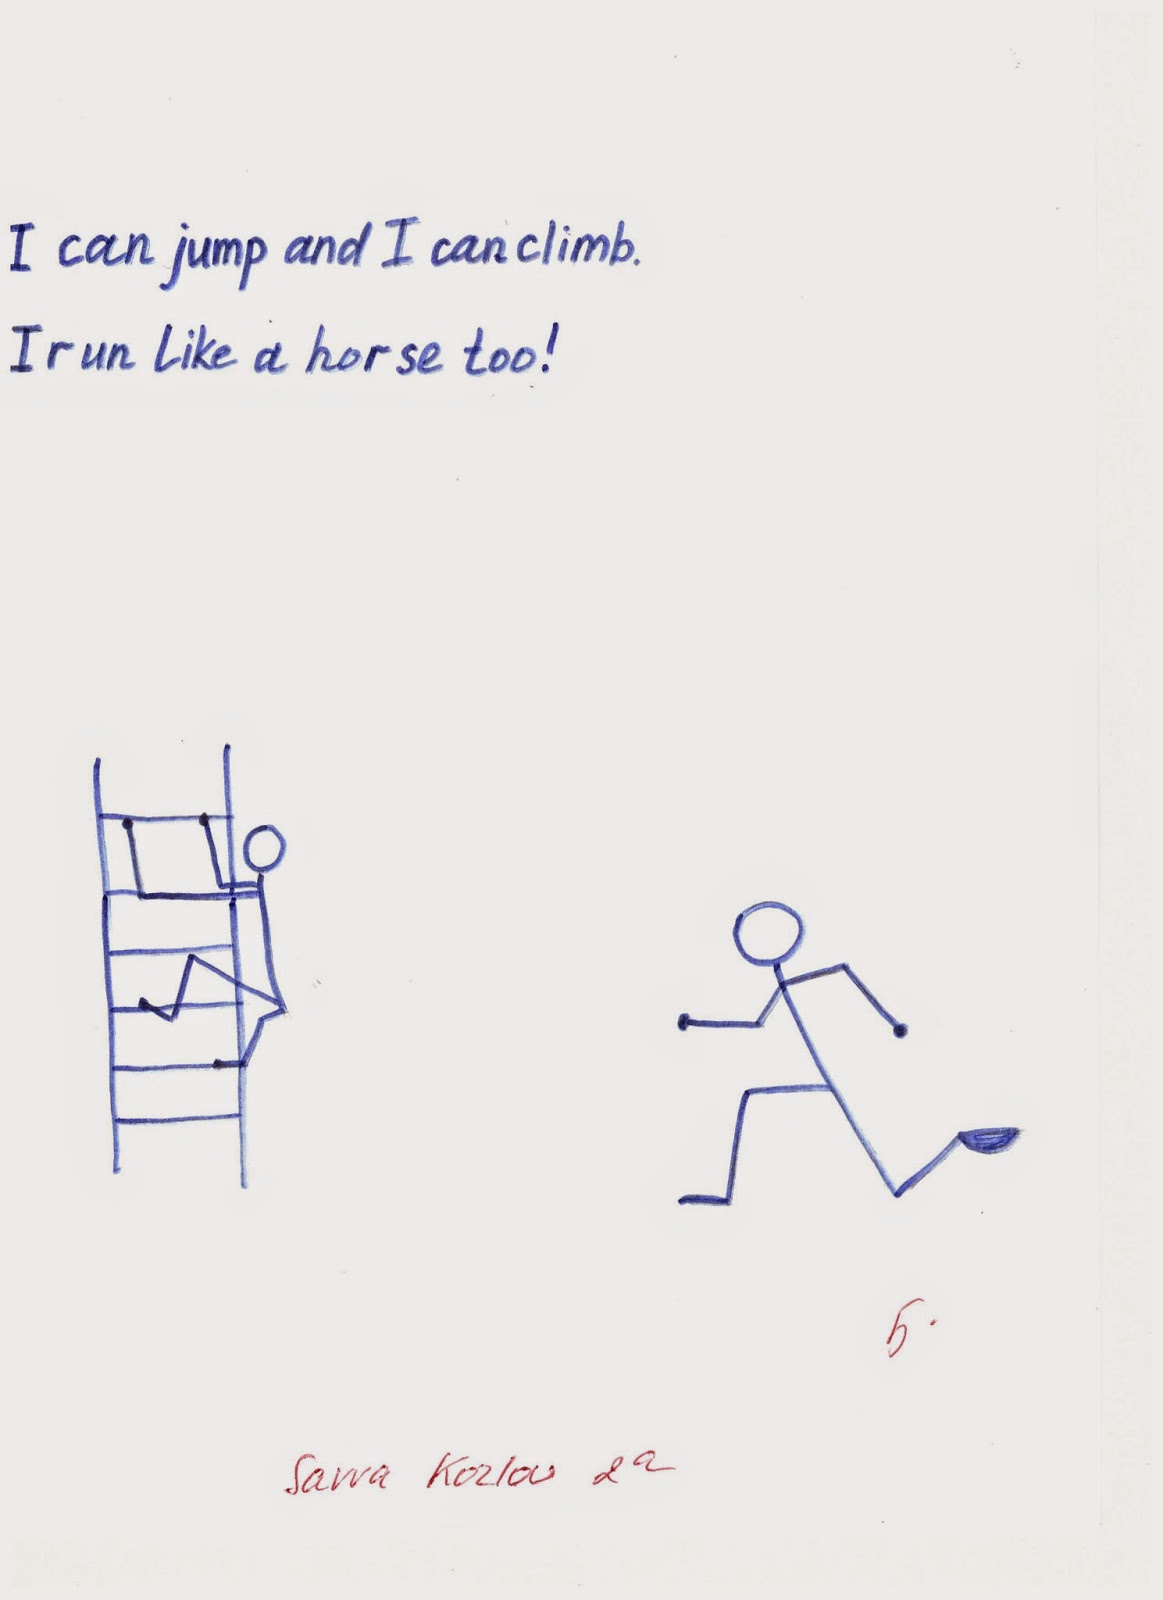 I can jump and I can climb.
I run like a horse too!
5.
Savva Kozlov 2a